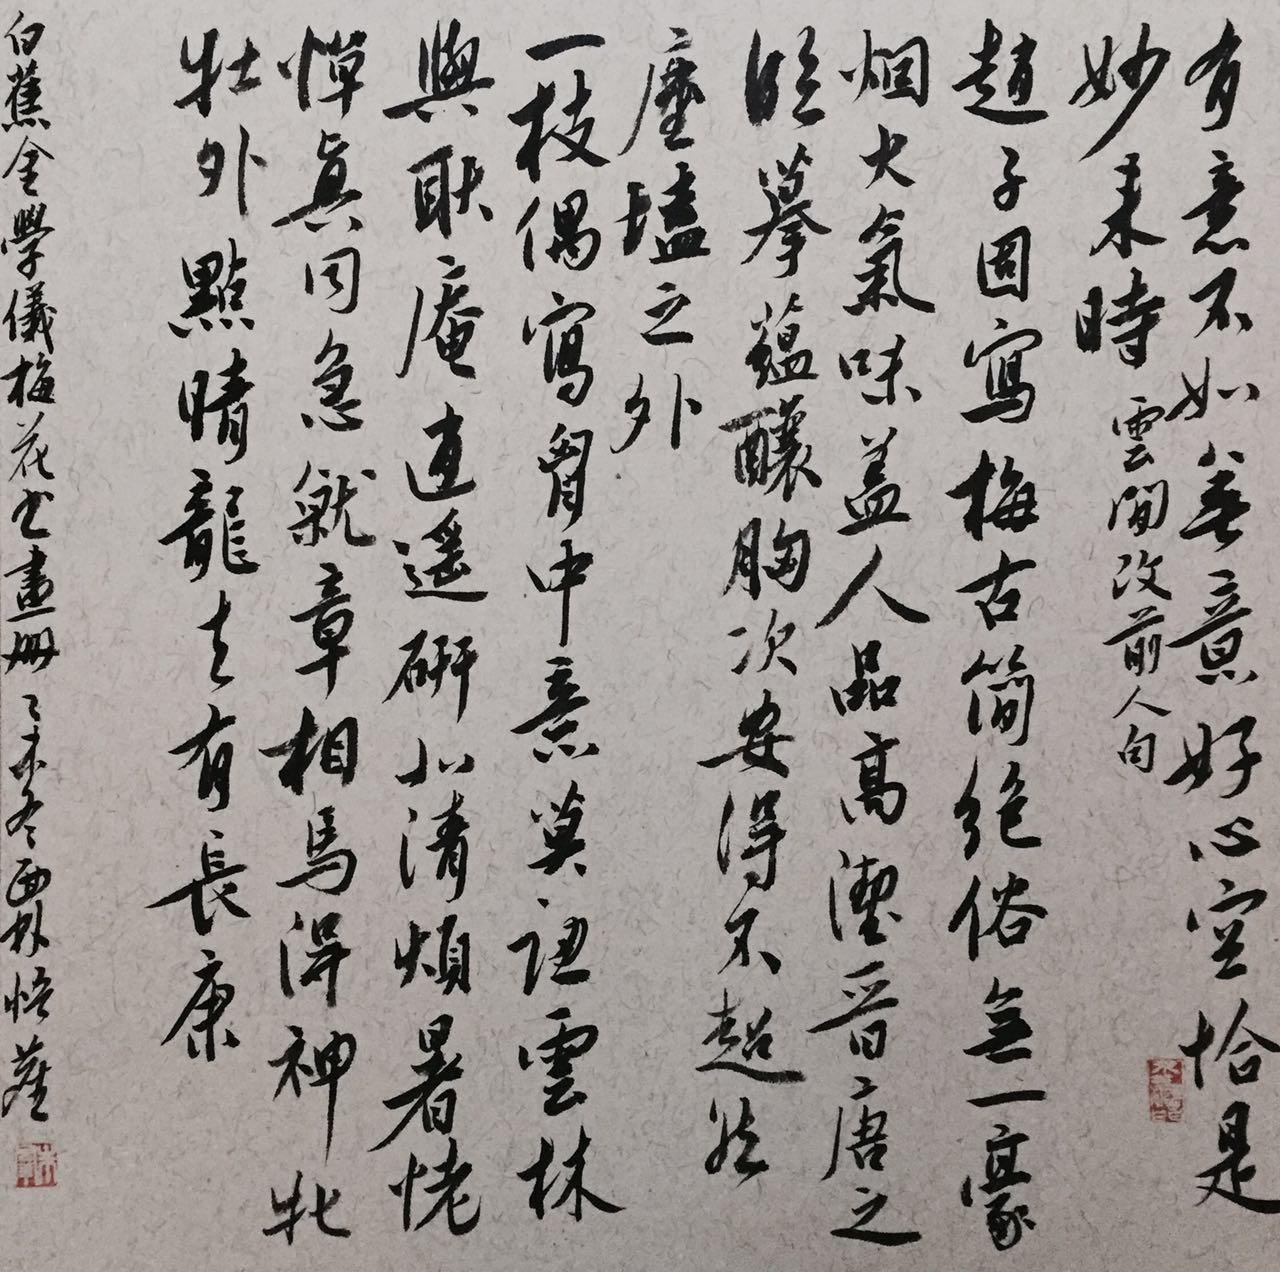 有意不如無意好心空恰是
妙来時雲間改前人句
趙子固寫梅古簡絕俗無一豪
烟火氣味盖人品高潔晉唐之
臨摹蘊釀胸次安得不超然
塵壒之外
一枝偶寫胷中意莫認雲林
與耿庵直遥研北清煩暑恅
悼真同急就章相馬得神牝
牡外點睛龍去有長康
白蕉金學儀梅花書畫册乙未冬西林悟